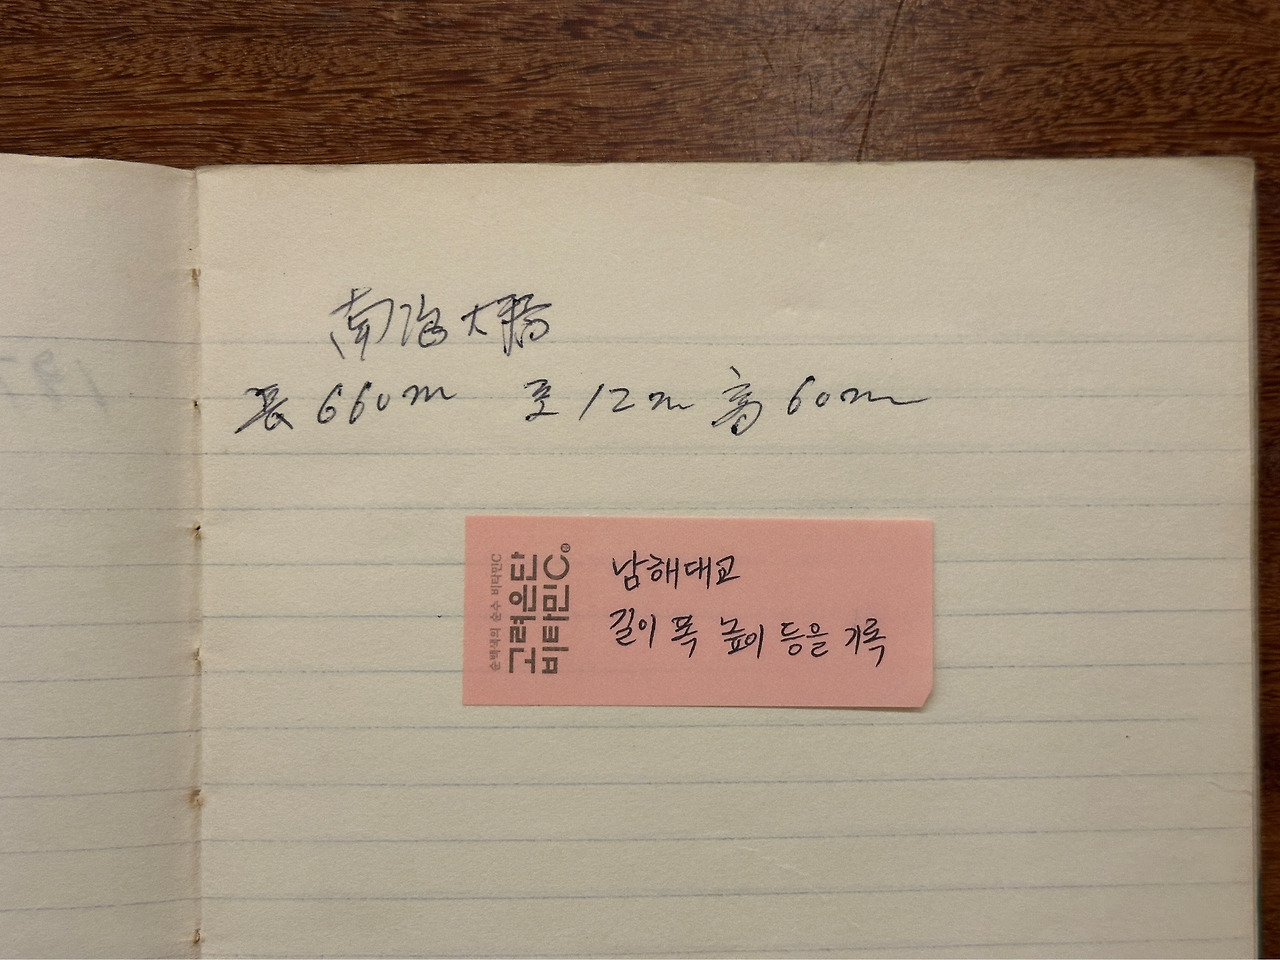 南海大橋
長 660m 폭 12m 高 60m
순백색의 순수 비타민C
고려은단
비타민C®
남해대교
길이 폭 높이 등을 기록